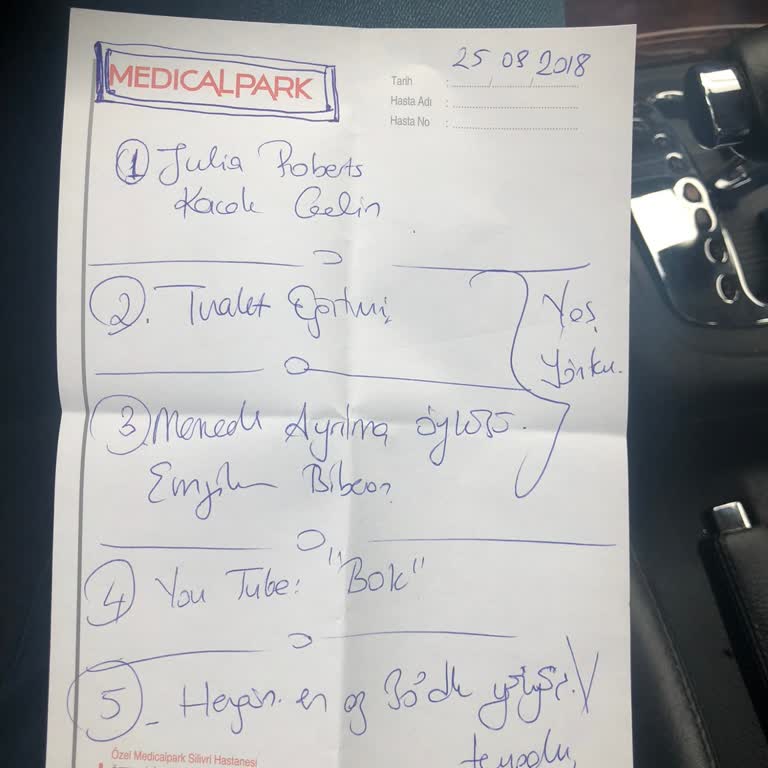 MEDICALPARK
25 08 2018
Tarih : / /
Hasta Adı :
Hasta No :
1 Julia Roberts
Kacak Gelin
2. Tualet Eğitimi
Yaş
3 Memeden Ayrılma öyküsü.
Emzik Biberon
4 You Tube: "Bok"
5 - Hergün en az 30 dk yürüyüş.
Özel Medicalpark Silivri Hastanesi